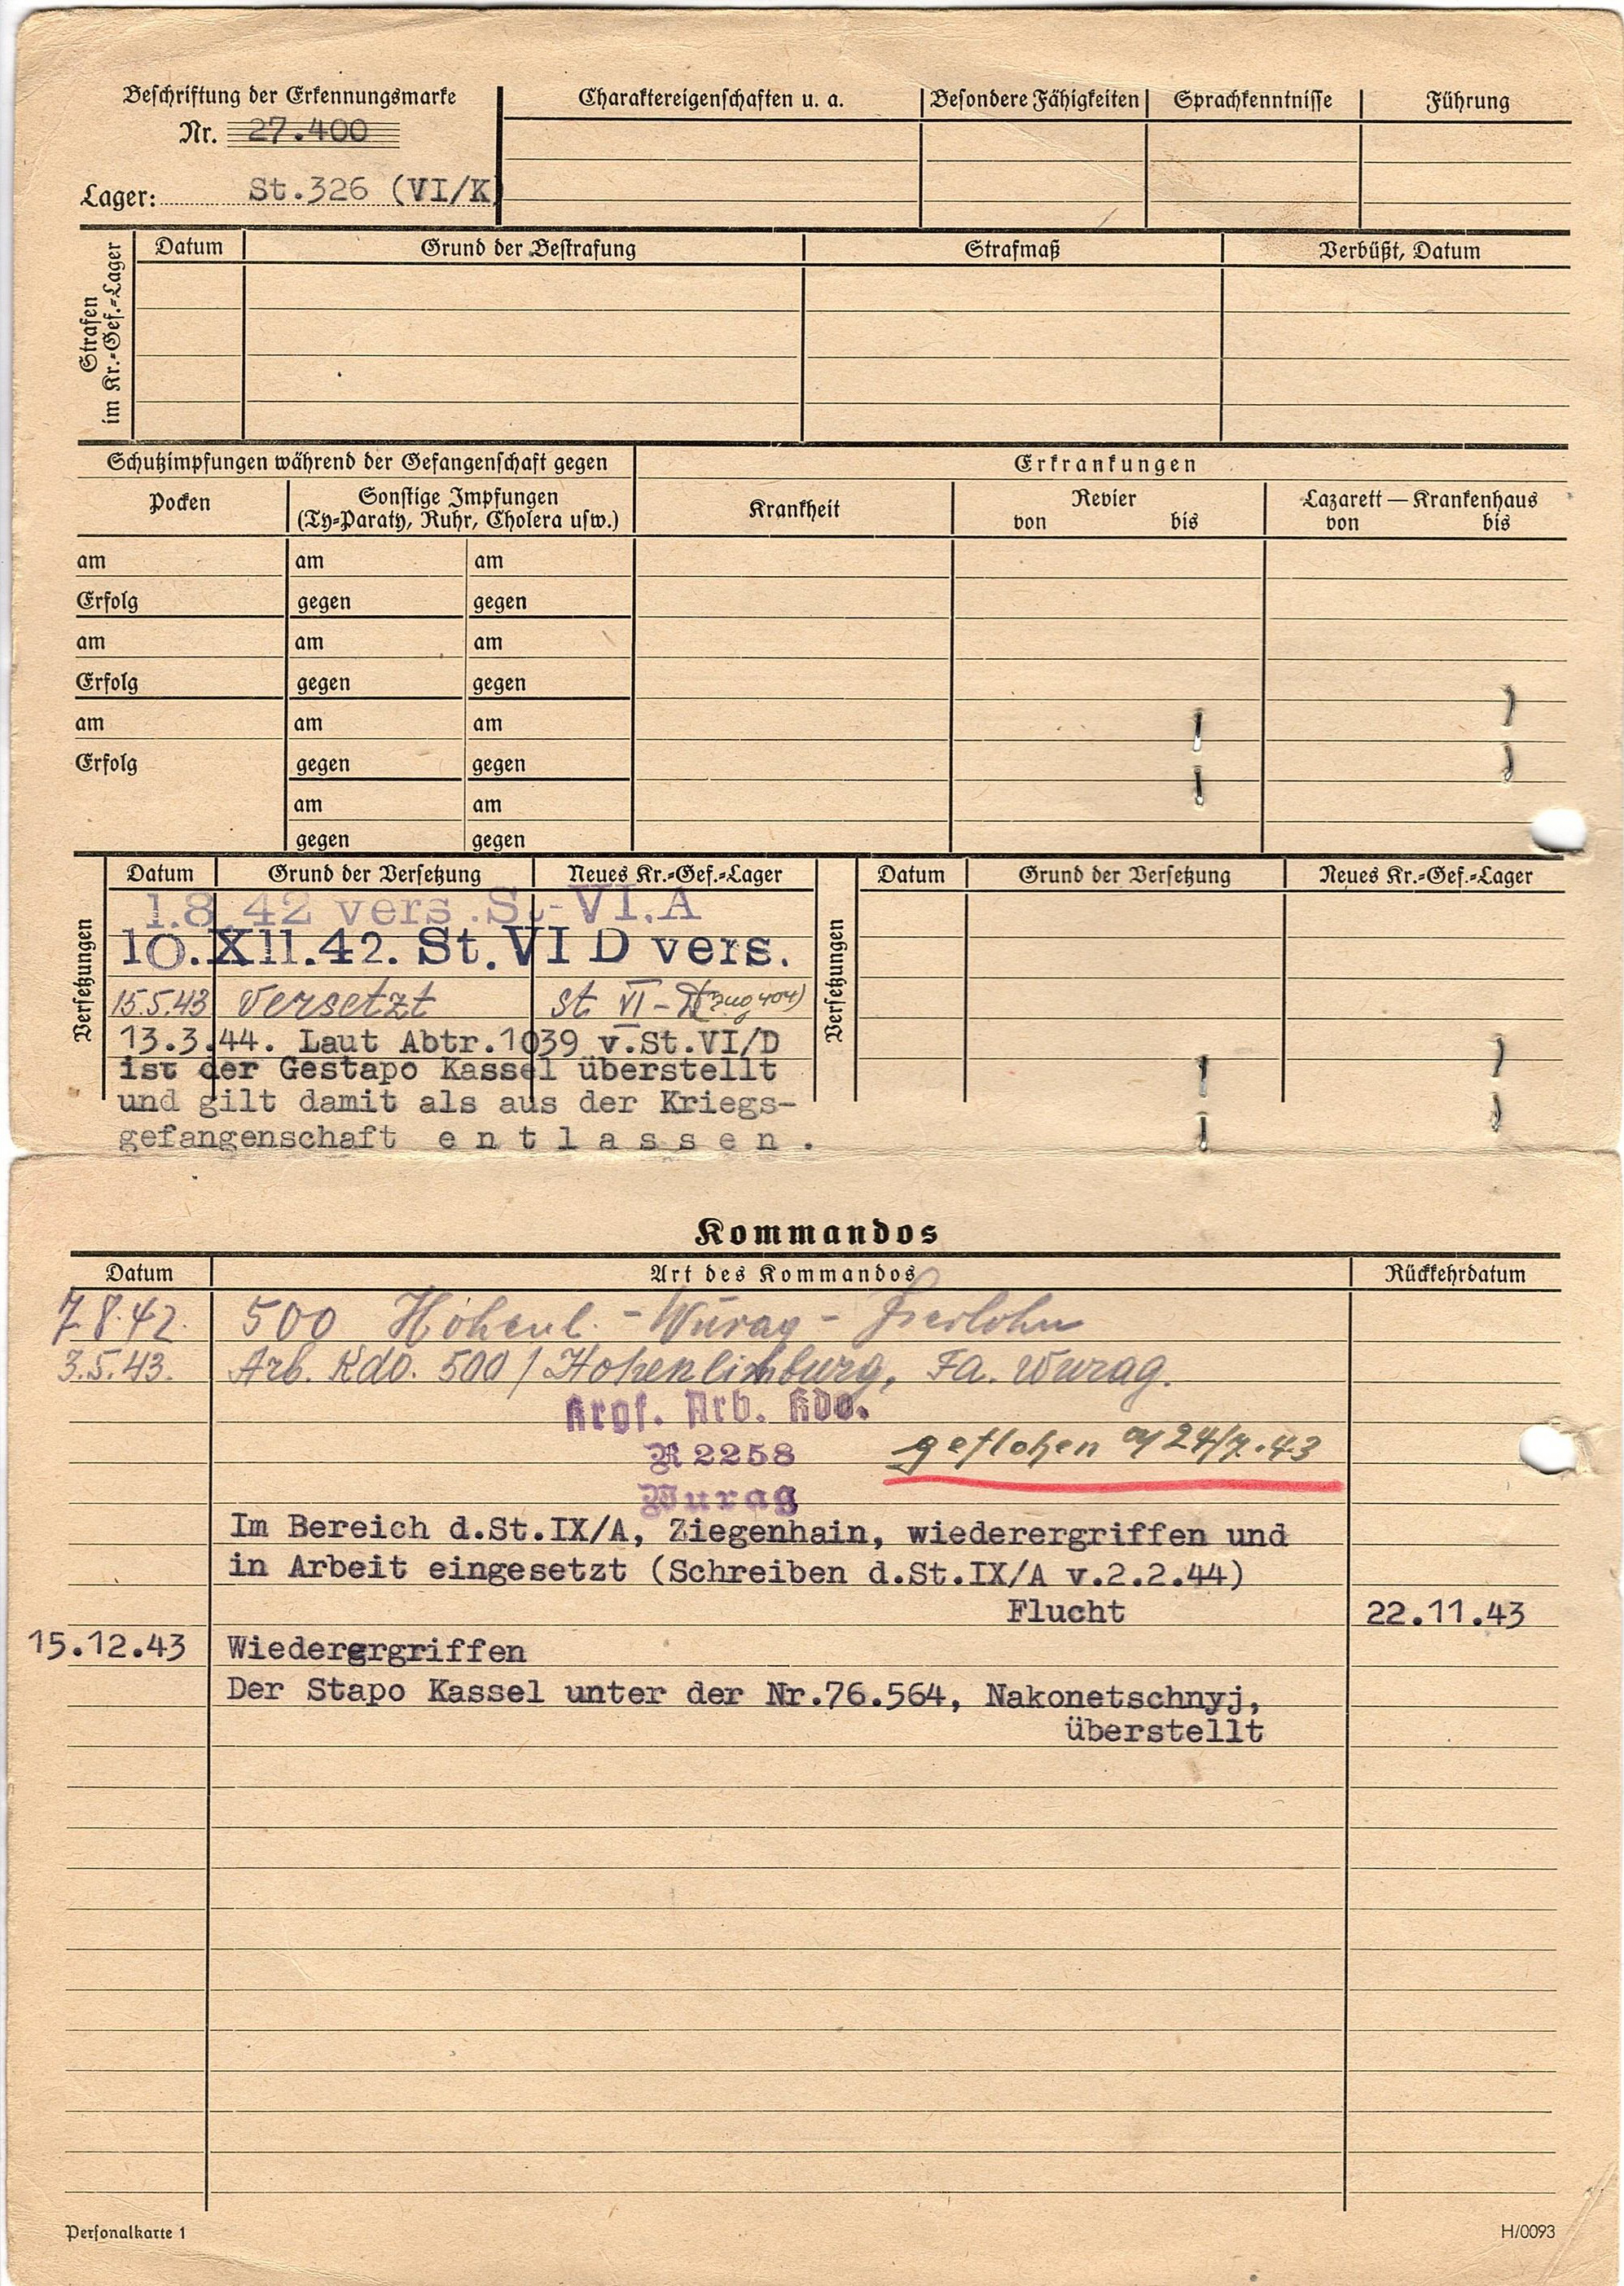 Beschriftung der Erkennungsmarke
Nr. 27.400
Lager: St.326 (VI/K)
Charaktereigenschaften u. a. Besondere Fähigkeiten Sprachkenntnisse Führung
Strafen
im Kr.-Gef.-Lager
Datum Grund der Bestrafung Strafmaß Verbüßt, Datum
Schutzimpfungen während der Gefangenschaft gegen Erkrankungen
Pocken Sonstige Impfungen Krankheit Revier Lazarett — Krankenhaus
(Ty-Paraty, Ruhr, Cholera usw.) von bis von bis
am am am
Erfolg gegen gegen
am am am
Erfolg gegen gegen
am am am
Erfolg gegen gegen
am am
gegen gegen
Versetzungen
Datum Grund der Versetzung Neues Kr.-Gef.-Lager
1.8.42 vers. St-VI.A
10.XII.42. St.VI D vers.
15.5.43 versetzt St VI-D
13.3.44. Laut Abtr.1039 v.St.VI/D
ist der Gestapo Kassel überstellt
und gilt damit als aus der Kriegs-
gefangenschaft e n t l a s s e n .
Versetzungen
Datum Grund der Versetzung Neues Kr.-Gef.-Lager
Kommandos
Datum Art des Kommandos Rückkehrdatum
7.8.42. 500 Hohenl. - Wurag - Iserlohn
3.5.43. Arb. Kdo. 500 / Hohenlimburg, Fa. Wurag.
Krgf. Arb. Kdo.
R 2258
Wurag
geflohen 24/7.43
Im Bereich d.St.IX/A, Ziegenhain, wiederergriffen und
in Arbeit eingesetzt (Schreiben d.St.IX/A v.2.2.44)
Flucht 22.11.43
15.12.43 Wiederergriffen
Der Stapo Kassel unter der Nr.76.564, Nakonetschnyj,
überstellt
Personalkarte 1
H/0093